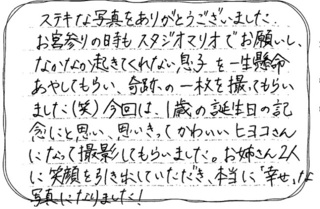 ステキな写真をありがとうございました。
お宮参りの日時もスタジオマリオでお願いし、
なかなか起きてくれない息子を一生懸命
あやしてもらい、奇跡の一枚を撮ってもらい
ました(笑)今回は、1歳の誕生日の記
念にと思い、思いきってかわいいヒヨコさん
になって撮影してもらいました。お姉さん2人
に笑顔を引き出していただき、本当に「幸せ」な
写真になりました！